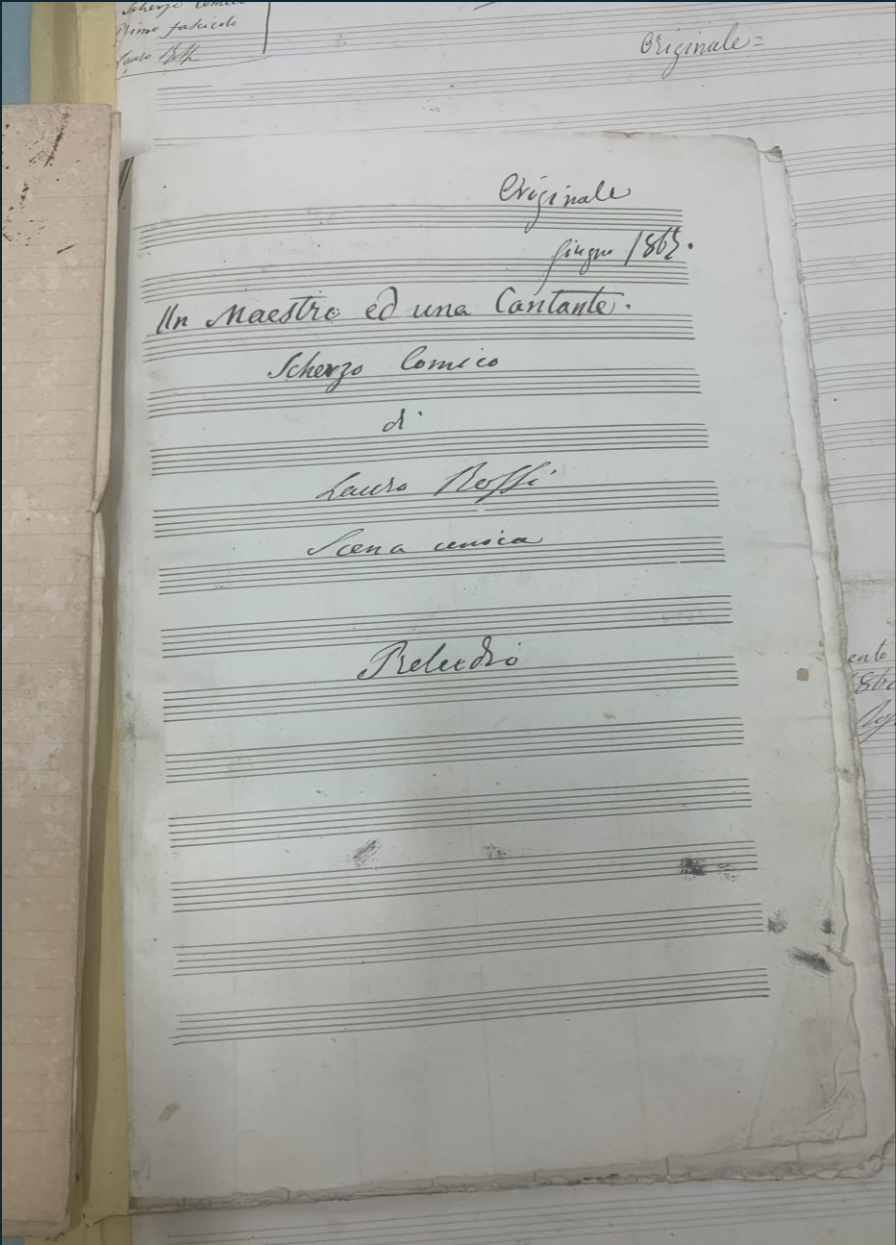 Scherzo Comico
Primo fascicolo
Lauro Rossi
Originale=
Originale
giugno 1865.
Un Maestro ed una Cantante.
Scherzo Comico
di
Lauro Rossi
Scena unica
Preludio
ento